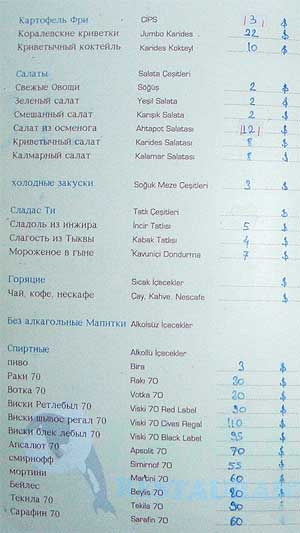 Картофель Фри CIPS 3 $
Королевские криветки Jumbo Karides 22 $
Криветычный коктейль Karides Kokteyl 10 $
Салаты Salata Çeşitleri
Свежые Овощи Söğüş 2 $
Зеленый салат Yeşil Salata 2 $
Смешанный салат Karışık Salata 2 $
Салат из осменога Ahtapot Salatası 12 $
Криветычный салат Karides Salatası 8 $
Калмарный салат Kalamar Salatası 8 $
холодные закуски Soğuk Meze Çeşitleri 3 $
Сладас Ти Tatlı Çeşitleri $
Сладоль из инжира İncir Tatlısı 5 $
Слагость из Тыквы Kabak Tatlısı 4 $
Мороженое в гыне Kavuniçi Dondurma 7 $
Горяцие Sıcak İçecekler $
Чай, кофе, нескафе Çay, Kahve, Nescafe $
Без алкагольные Мапитки Alkolsüz İçecekler
Спиртные Alkollü İçecekler
пиво Bira 3 $
Раки 70 Rakı 70 $
Вотка 70 Votka 70 $
Виски Ретлебыл 70 Viski 70 Red Label 90 $
Виски шывос регал 70 Viski 70 Cives Regal 110 $
Виски блек лебыл 70 Viski 70 Black Label 95 $
Апсалют 70 Apsolit 70 70 $
смирнофф Simirnof 70 55 $
мортини Martini 70 60 $
Бейлес Beylis 70 $
Текила 70 Tekila 70 90 $
Сарафин 70 Sarafin 70 60 $